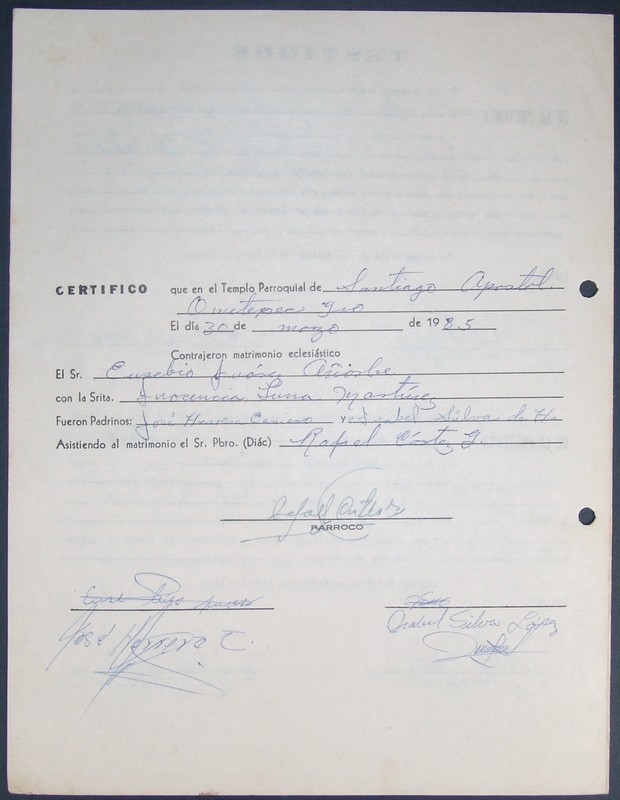 CERTIFICO que en el Templo Parroquial de Santiago Apostol.
Ometepec Gro
El día 30 de marzo de 1985
Contrajeron matrimonio eclesiástico
El Sr. Eusebio Juárez Añorbe
con la Srita. Inocencia Luna Martínez
Fueron Padrinos: José Herrera y Isabel Silva de He
Asistiendo al matrimonio el Sr. Pbro. (Diác) Rafael Cortez G.
PARROCO
José Herrera C.
Isabel Silva López